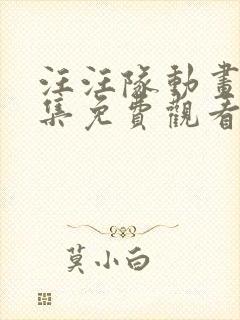 汪汪隊動畫
集免費觀看
莫小白